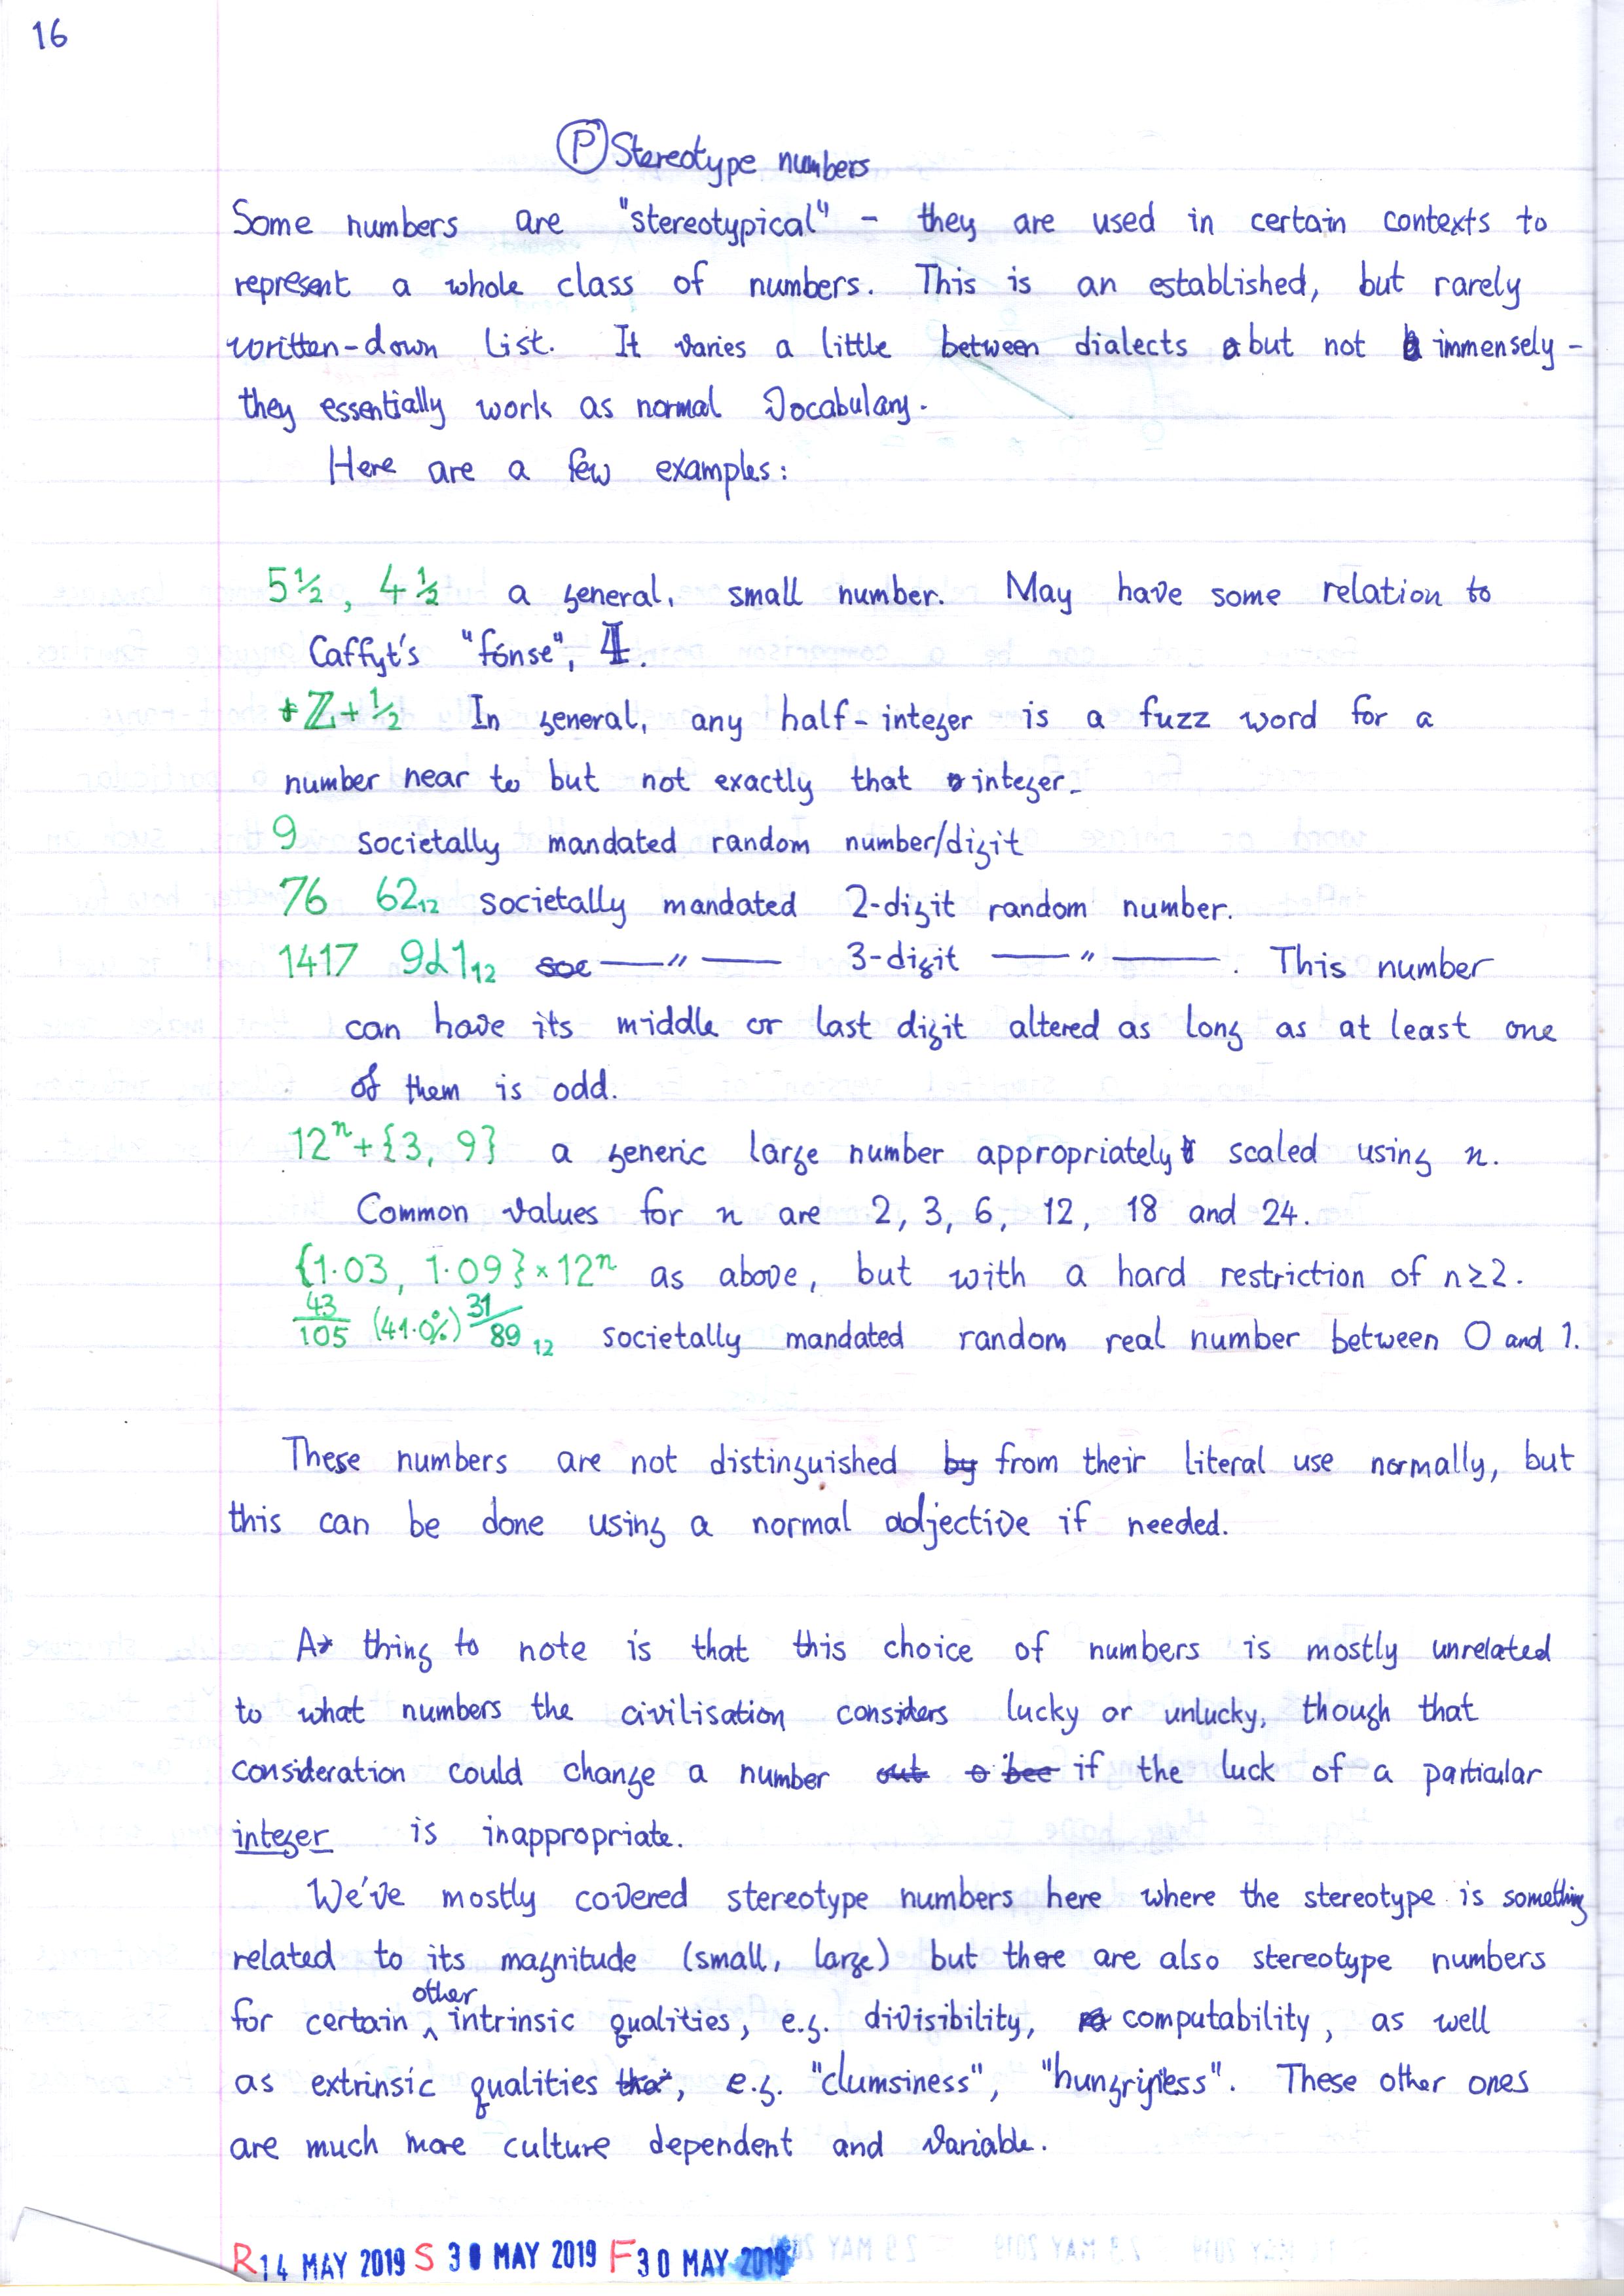 16
Ⓟ Stereotype numbers
Some numbers are "stereotypical" - they are used in certain contexts to
represent a whole class of numbers. This is an established, but rarely
written-down list. It varies a little between dialects but not immensely -
they essentially work as normal vocabulary.
Here are a few examples:
5½, 4½ a general, small number. May have some relation to
Caffyt's "fónse", 4.
+ℤ+½ In general, any half-integer is a fuzz word for a
number near to but not exactly that integer.
9 societally mandated random number/digit
76 62₁₂ societally mandated 2-digit random number.
1417 9d1₁₂ soc —— " —— 3-digit —— " ——. This number
can have its middle or last digit altered as long as at least one
of them is odd.
12ⁿ+{3, 9} a generic large number appropriately scaled using n.
Common values for n are 2, 3, 6, 12, 18 and 24.
{1·03, 1·09}×12ⁿ as above, but with a hard restriction of n≥2.
43/105 (41·0%) 31/89 ₁₂ societally mandated random real number between 0 and 1.
These numbers are not distinguished by from their literal use normally, but
this can be done using a normal adjective if needed.
A thing to note is that this choice of numbers is mostly unrelated
to what numbers the civilisation considers lucky or unlucky, though that
consideration could change a number out o bee if the luck of a particular
integer is inappropriate.
We've mostly covered stereotype numbers here where the stereotype is something
related to its magnitude (small, large) but there are also stereotype numbers
for certain other intrinsic qualities, e.g. divisibility, computability, as well
as extrinsic qualities that, e.g. "clumsiness", "hungriness". These other ones
are much more culture dependent and variable.
R 14 MAY 2019 S 30 MAY 2019 F 30 MAY 2019